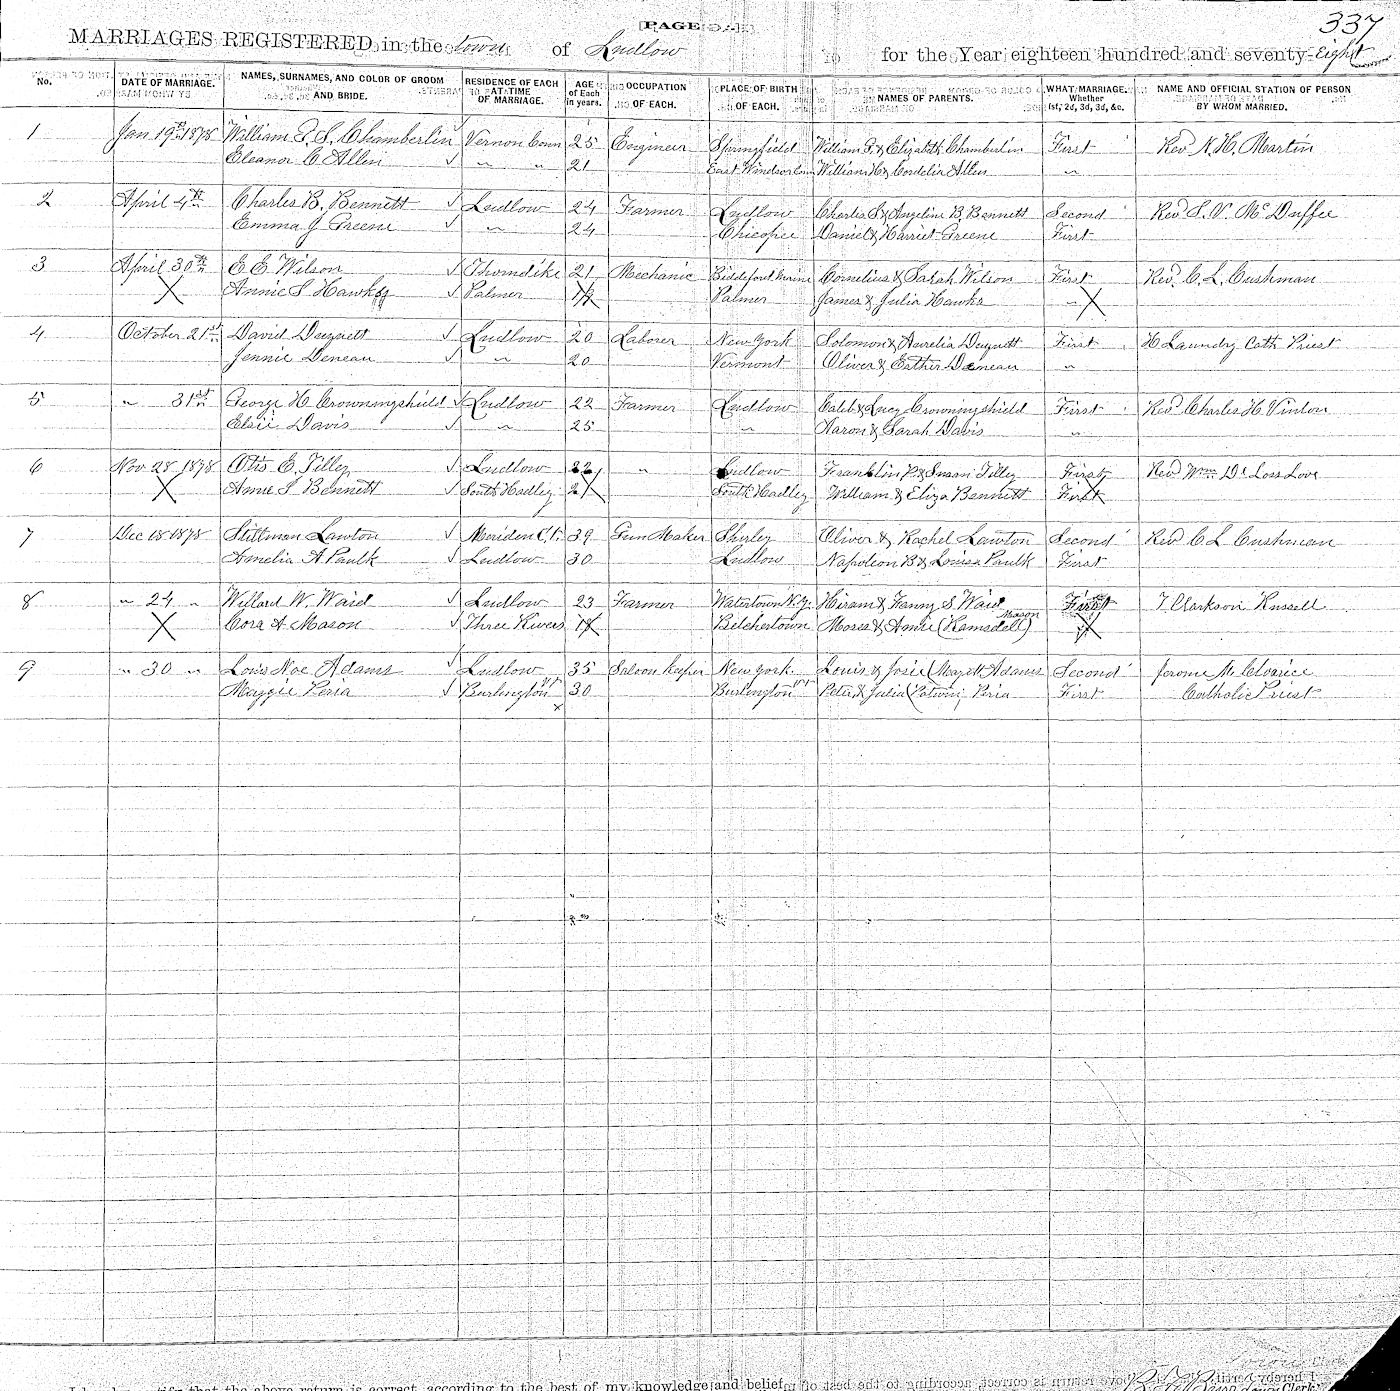 PAGE
337
MARRIAGES REGISTERED in the town of Ludlow for the Year eighteen hundred and seventy-Eight
No. DATE OF MARRIAGE. NAMES, SURNAMES, AND COLOR OF GROOM AND BRIDE. RESIDENCE OF EACH AT TIME OF MARRIAGE. AGE of Each in years. OCCUPATION OF EACH. PLACE OF BIRTH OF EACH. NAMES OF PARENTS. WHAT MARRIAGE. Whether 1st, 2d, 3d, &c. NAME AND OFFICIAL STATION OF PERSON BY WHOM MARRIED.
1 Jan 19th 1878 William F. S. Chamberlin Vernon Conn 25 Engineer Springfield William G. & Elizabeth Chamberlin First Rev N. H. Martin
Eleanor C. Allen " " 21 East Windsor Conn William H & Cordelia Allen "
2 April 4th Charles B. Bennett Ludlow 24 Farmer Ludlow Charles S. & Angeline B. Bennett Second Rev S. V. McDuffee
Emma J Greene " 24 Chicopee Daniel & Harriet Greene First
3 April 30th E. E. Wilson Thorndike 21 Mechanic Biddeford Maine Cornelius & Sarah Wilson First Rev. C. L. Cushman
X Annie S Hawks Palmer Palmer James & Julia Hawks " X
4 October 21st David Duquett Ludlow 20 Laborer New York Solomon & Aurelia Duquett First H Laundry Cath Priest
Jennie Deneau " 20 Vermont Oliver & Esther Deneau "
5 " 31st George H Crowningshield Ludlow 22 Farmer Ludlow Caleb & Lucy Crowningshield First Rev Charles H Vinton
Elsie Davis " 25 " Aaron & Sarah Davis "
6 Nov 28 1878 Otis E. Tilley Ludlow 22 " Ludlow Franklin P & Susan Tilley First Rev Wm De Loss Love
X Annie S Bennett South Hadley South Hadley William & Eliza Bennett First
7 Dec 18 1878 Stillman Lawton Meriden Ct. 39 Gun Maker Shirley Oliver & Rachel Lawton Second Rev C L Cushman
Amelia A Paulk Ludlow 30 Ludlow Napoleon B & Louisa Paulk First
8 " 24 " Willard W. Waid Ludlow 23 Farmer Watertown N.Y. Hiram & Fanny S Waid First T Clarkson Russell
X Cora A. Mason Three Rivers 18 Belchertown Moses & Annie (Ramsdell) Mason "
9 " 30 " Louis Noe Adams Ludlow 35 Saloon Keeper New York Louis & Josie (Mayott Adams Second Jerome
Maggie Peria Burlington Vt 30 Burlington Vt Peter & Julia (Potwin) Peria First Catholic Priest
that the above return is correct, according to the best of my knowledge and belief.